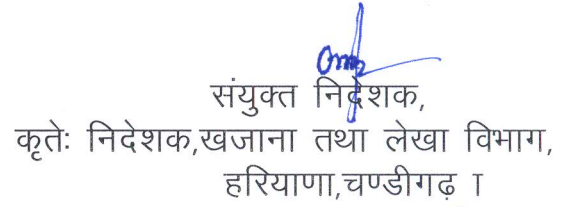 संयुक्त निदेशक,
कृतेः निदेशक,खजाना तथा लेखा विभाग,
हरियाणा,चण्डीगढ़ ।